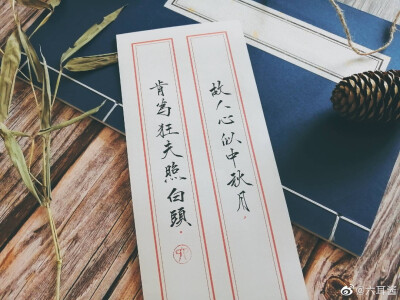 故人心似中秋月
肯为狂夫照白頭
@六耳酱